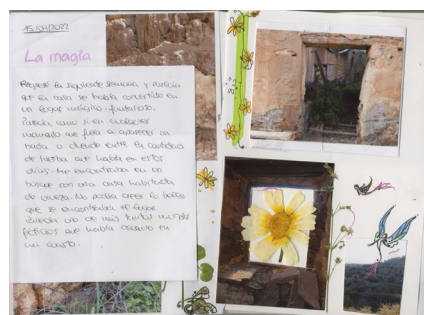 15/04/2022
La magia
Regresé la siguiente semana y parecía
que la casa se había convertido en
un lugar mágico, fantasioso.
Parecía como si en cualquier
momento que fuera a aparecer un
hada o duende entre la cantidad
de hierba que había en estos
días. Me encontraba en un
bosque con una casa habitada
de
No podía creer lo bello
que se encontraba el lugar.
Parecía uno de mis mundos
ficticios que había creado en
mi cuarto.